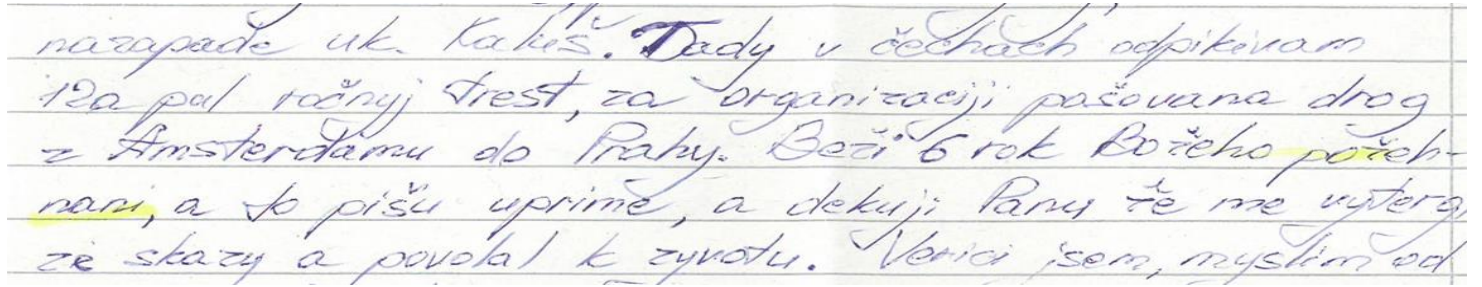 narapade uk. Kaluš. Tady v čechach odpikivam
12a pul ročnyj trest, za organizaciji pašovana drog
z Amsterdamu do Prahy. Beži 6 rok Božeho požeh-
nani, a to pišu uprime, a dekuji Panu že me vyterg
ze skazy a povolal k zyvotu. Verici jsem, myslim od